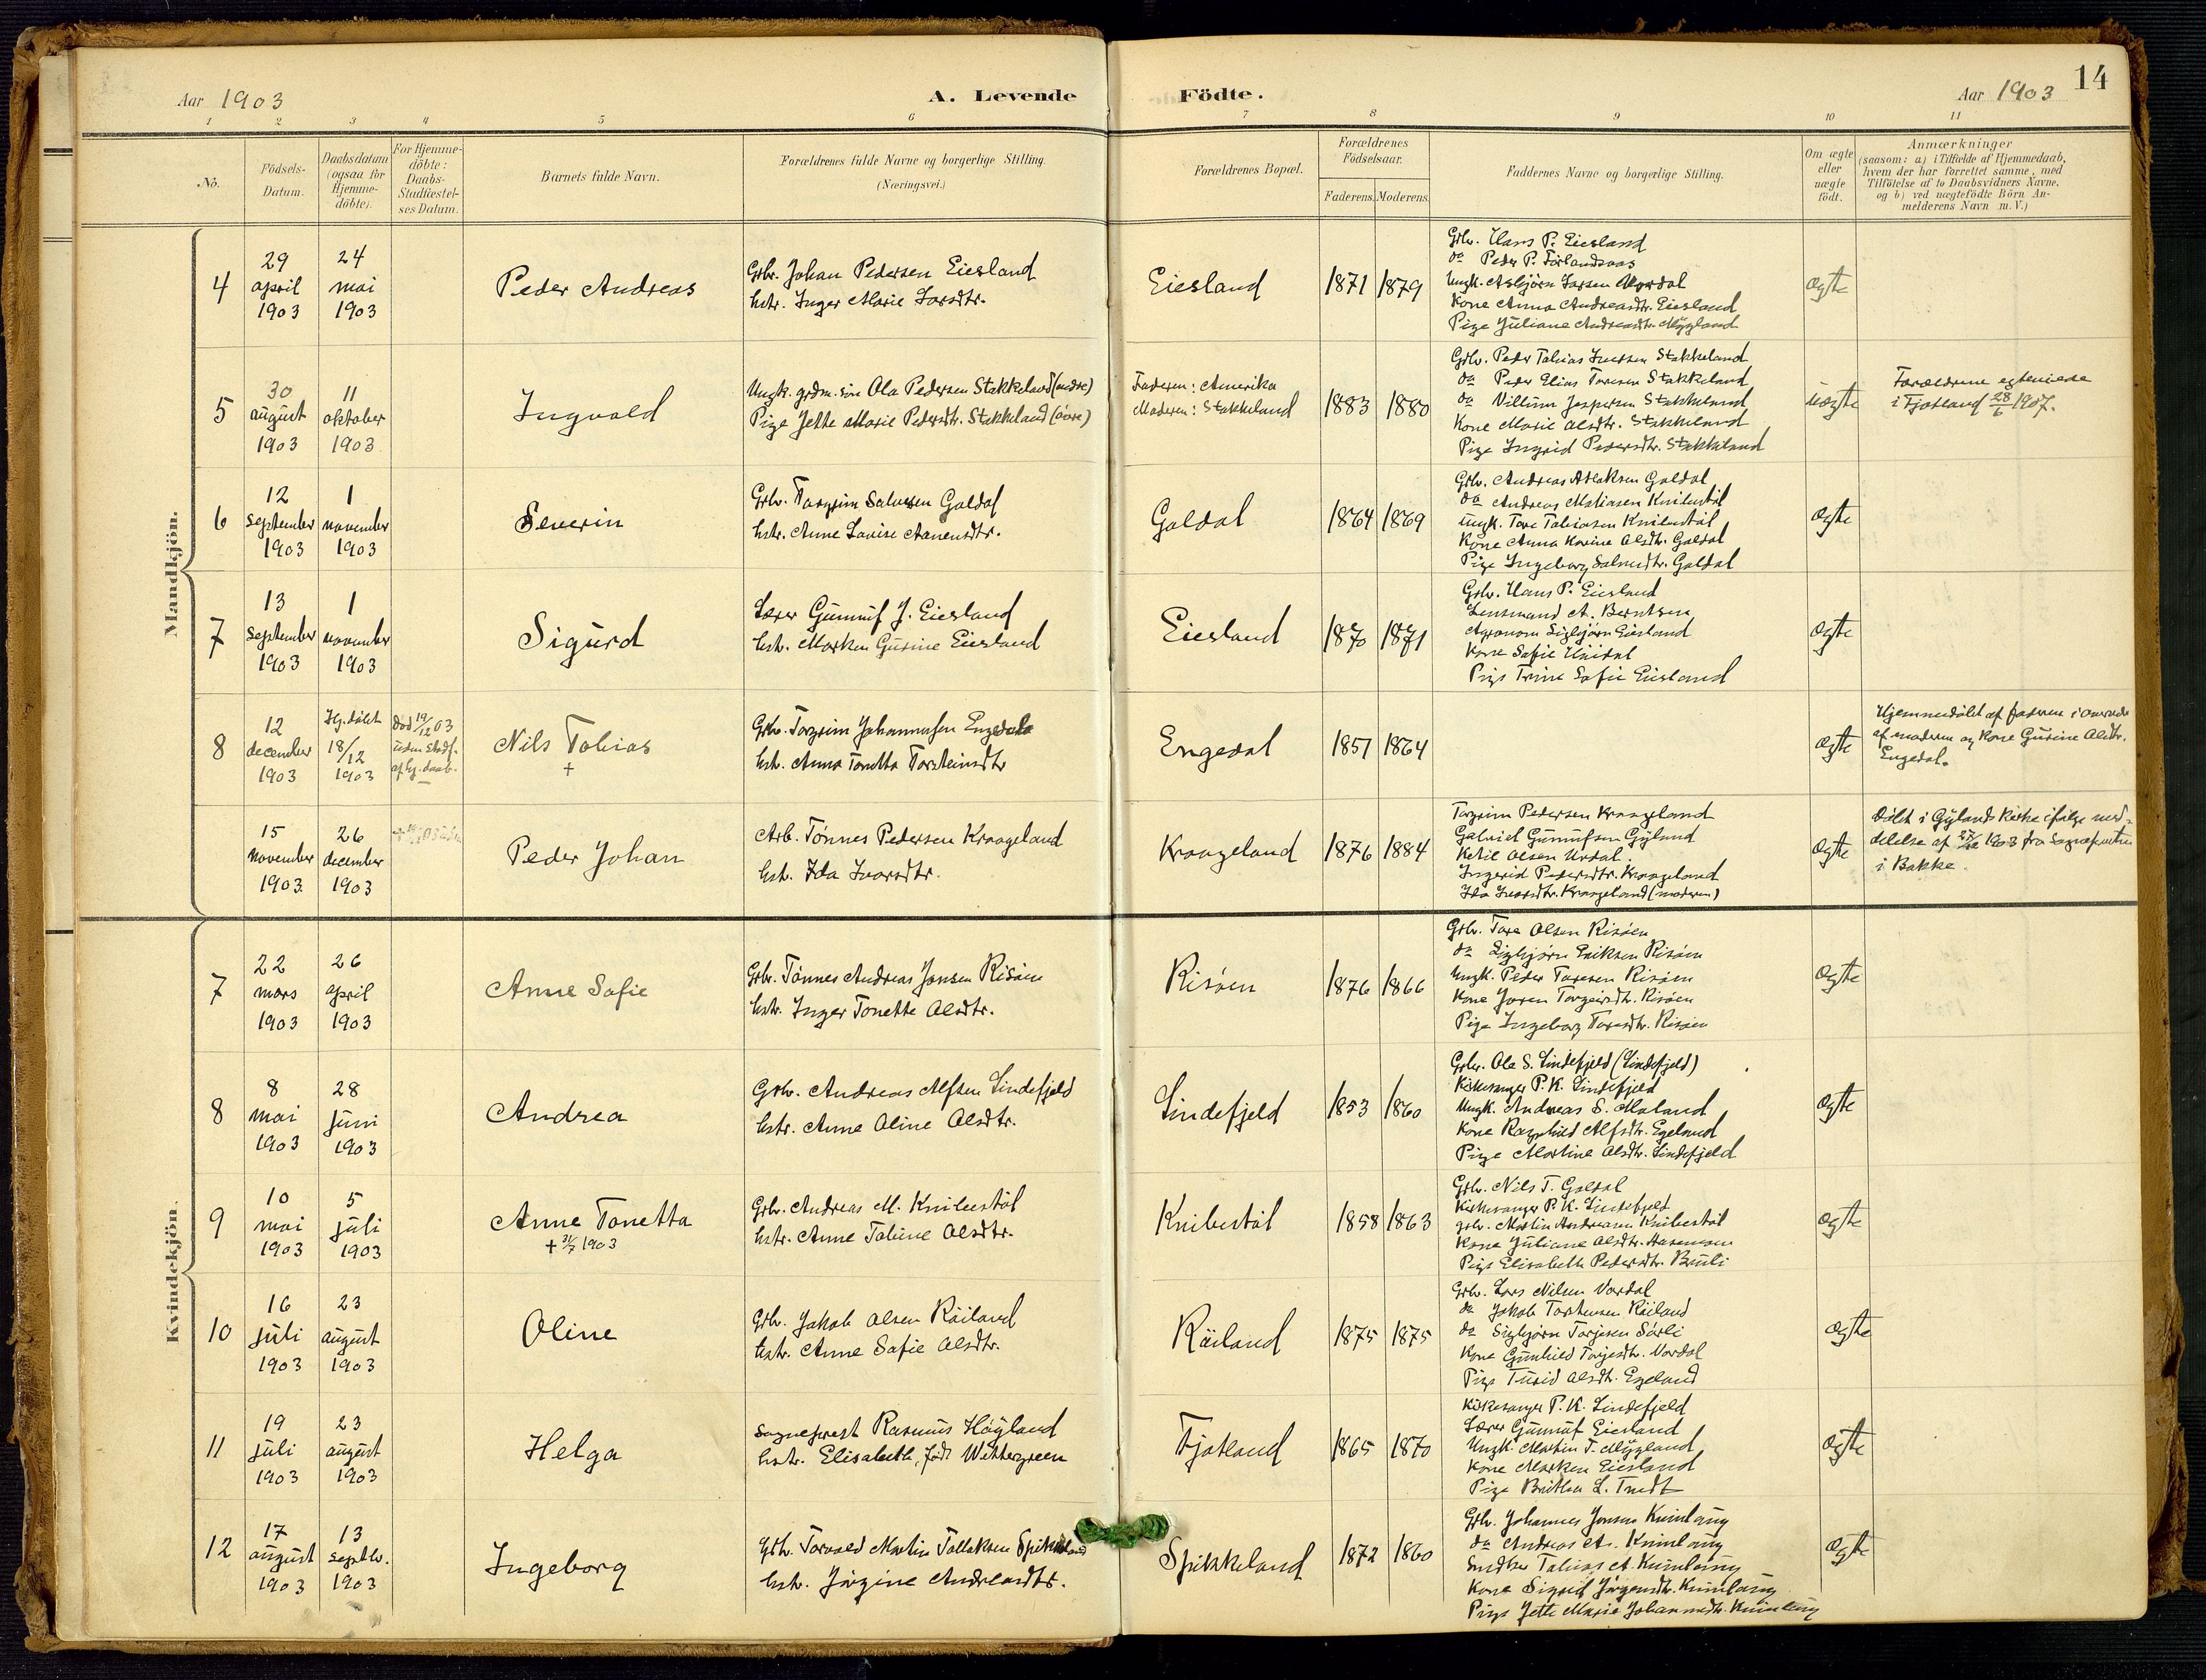 14
Aar 1903
A. Levende Födte.
Aar 1903
1 2 3 4 5 6 7 8 9 10 11
No.
Födsels-
Datum.
Daabsdatum
(ogsaa for
Hjemme-
döbte).
For Hjemme-
döbte:
Daabs-
Stadfæstel-
ses Datum.
Barnets fulde Navn.
Forældrenes fulde Navne og borgerlige Stilling.
(Næringsvei.)
Forældrenes Bopæl.
Forældrenes
Födselsaar.
Faderens.
Moderens.
Faddernes Navne og borgerlige Stilling.
Om ægte
eller
uægte
födt.
Anmærkninger
(saasom: a) i Tilfælde af Hjemmedaab,
hvem der har forrettet samme, med
Tilföielse af to Daabsvidners Navne,
og b) ved uægtefödte Börn An-
melderens Navn m. V.)
Mandkjön.
4
29
april
1903
24
mai
1903
Peder Andreas
Grbr. Johan Pedersen Eiesland
hstr. Inger Marie Larsdtr.
Eiesland
1871
1879
Grbr. Hans P. Eiesland
do Peder P. Förlandsaas
Ungk. Asbjörn Larsen
Kone Anna Andreasdtr. Eiesland
Pige Juliane Andreasdtr. Mygland
ægte
5
30
august
1903
11
oktober
1903
Ingvald
Ungk. grdm. sön Ola Pedersen Stakkeland (nedre)
Pige Jette Marie Pedersdtr. Stakkeland (övre)
Faderen: Amerika
Moderen: Stakkeland
1883
1880
Grbr. Peder Tobias Stakkeland
do Peder Elias Toresen Stakkeland
do Villum Jespersen Stakkeland
Kone Marie Olsdtr. Stakkeland
Pige Ingrid Pedersdtr. Stakkeland
uægte
Forældrene egteviede
i Fjotland 28/6 1907.
6
12
september
1903
1
november
1903
Severin
Grbr. Torgrim Salvesen Galdal
hstr. Anne Lovise Aanensdtr.
Galdal
1864
1869
Grbr. Andreas Atlaksen Galdal
do Andreas Matiasen Knibestöl
Ungk. Tore Tobiasen Knibestöl
Kone Anna Karine Olsdtr. Galdal
Pige Ingeborg Salvesdtr. Galdal
ægte
7
13
september
1903
1
november
1903
Sigurd
Lærer Gunnuf J. Eiesland
hstr. Marken Gurine Eiesland
Eiesland
1870
1871
Grbr. Hans P. Eiesland
Lensmand A. Berntsen
Agronom Sigbjörn Eiesland
Kone Sofie
Pige Trine Sofie Eiesland
ægte
8
12
december
1903
Hj. döbt
18/12
1903
död 19/12 03
uden Stadf.
af hj. daab.
Nils Tobias
+
Grbr. Torgrim Johannesen Engedal
hstr. Anna Tonetta Torsteinsdtr
Engedal
1857
1864
ægte
Hjemmedöbt af faderen i
af moderen og Kone Gurine Olsdtr.
Engedal.
15
november
1903.
26
december
1903
Peder Johan
Arb. Tönnes Pedersen Kraageland
hstr. Ida Ivarsdtr.
Kraageland
1876
1884
Torgrim Pedersen Kraageland
Gabriel Gunnufsen Gyland
Ketil Olsen Urdal.
Ingerid Pedersdtr. Kraageland
Ida Ivarsdtr. Kraageland (moderen)
ægte
Döbt i Gylands Kirke ifölge med-
delelse af 1903 fra Sognepresten
i Bakke.
Kvindekjön.
7
22
mars
1903
26
april
1903
Anne Sofie
Grbr. Tönnes Andreas Jonsen Risöen
hstr. Inger Tonette Olsdtr.
Risöen
1876
1866
Grbr. Tore Olsen Risöen
do Sigbjörn Eriksen Risöen
Ungk. Peder Toresen Risöen
Kone Joren Torgeirsdtr. Risöen
Pige Ingeborg Toresdtr. Risöen
ægte
8
8
mai
1903
28
juni
1903
Andrea
Grbr. Andreas Alfsen Lindefjeld
hstr. Anne Oline Olsdtr.
Lindefjeld
1853
1860
Grbr. Ola S. Lindefjeld (Lindefjeld)
Kirkesanger P. K. Lindefjeld
Ungk. Andreas S. Moland
Kone Ragnhild Alfsdtr. Egeland
Pige Martine Olsdtr. Lindefjeld
ægte
9
10
mai
1903
5
juli
1903
Anne Tonetta
+ 31/7 1903
Grbr. Andreas M. Knibestöl
hstr. Anne Tobine Olsdtr.
Knibestöl
1858
1863
Grbr. Nils T. Galdal
Kirkesanger P. K. Lindefjeld
grbr. Martin Andreasen Knibestöl
Kone Juliane Olsdtr.
Pige Elisabeth Pedersdtr. Bruli
ægte
10
16
juli
1903
23
august
1903
Oline
Grbr. Jakob Olsen Röiland
hstr. Anne Sofie Olsdtr.
Röiland
1875
1875
Grbr. Lars Nilsen Vordal
do Jakob Torkelsen Röiland
do Sigbjörn Torjesen Sörli
Kone Gunhild Torjesdtr. Vordal
Pige Turid Olsdtr. Egeland
ægte
11
19
juli
1903
23
august
1903
Helga
Sogneprest Rasmus Höyland
hstr. Elisabeth, född Wettergreen
Fjotland
1865
1870
Kirkesanger P. K. Lindefjeld
Lærer Gunnuf Eiesland
Ungk. Martin T. Mygland
Kone Marken Eiesland
Pige
ægte
12
17
august
1903
13
septbr.
1903
Ingeborg
Grbr. Torvald Martin Tollaksen Spikkeland
hstr. Jörgine Andreasdtr.
Spikkeland
1872
1860
Grbr. Johannes Jonsen Kvinlaug
do Andreas A. Kvinlaug
Tobias A. Kvinlaug
Kone Sigrid Jörgensdtr. Kvinlaug
Pige Jette Marie Johannesdtr. Kvinlaug
ægte